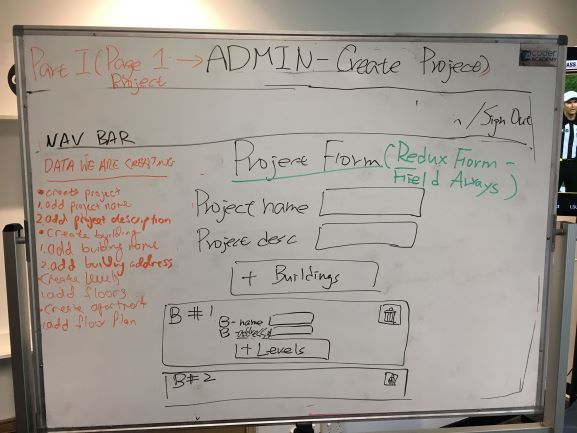 Part I (Page 1 → ADMIN - Create Project)
Project
coder
ACADEMY
/Sign Out
NAV BAR
DATA WE ARE CREATING
• Create project
1. add project name
2. add project description
• Create building
1. add building name
2. add building address
• Create Levels
1. add floors
• Create apartment
1. add floor plan
Project Form (Redux Form -
Field Arrays)
Project name
Project desc
+ Buildings
B #1
B-name
B-address
+ Levels
B#2